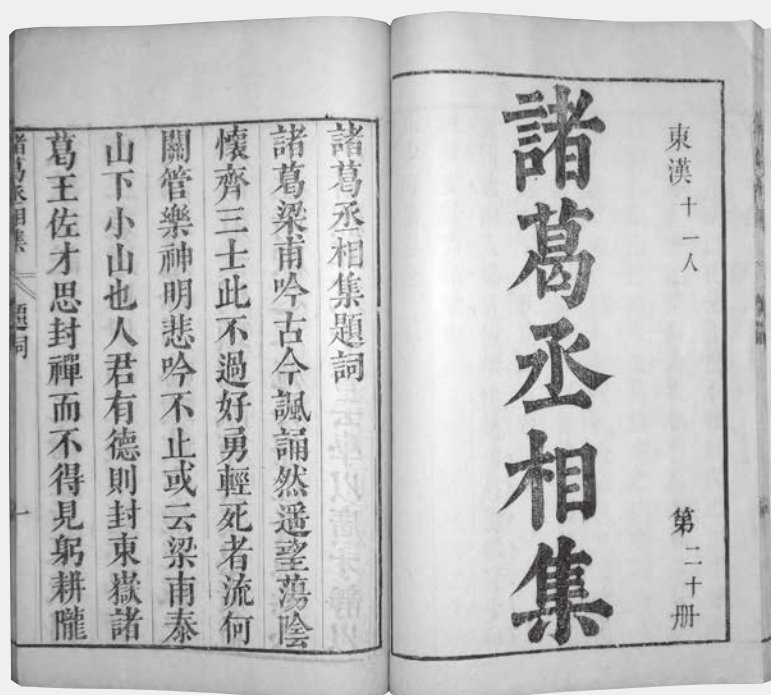 東漢十一人
第二十册
諸葛丞相集
諸葛丞相集題詞
諸葛梁甫吟古今諷誦然遥望蕩陰
懷齊三士此不過好勇輕死者流何
關管樂神明悲吟不止或云梁甫泰
山下小山也人君有德則封東嶽諸
葛王佐才思封禪而不得見躬耕隴
諸葛丞相集
題詞
一